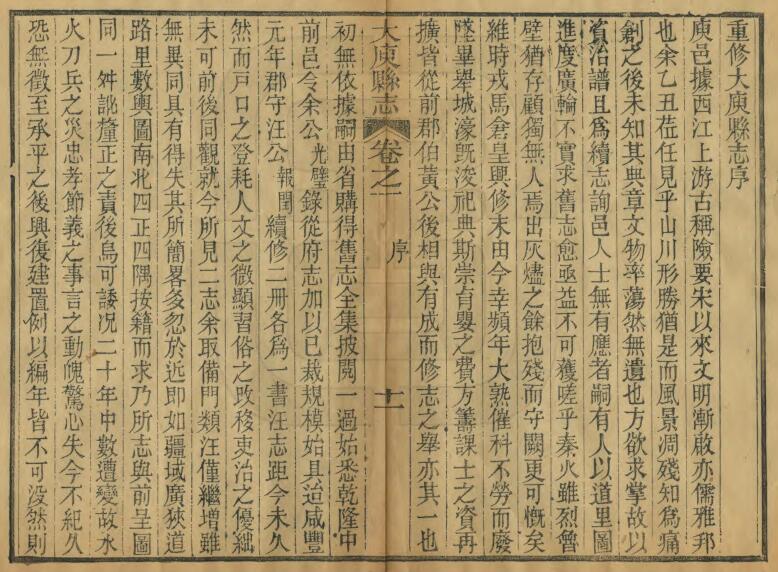 重修大庾縣志序
庾邑據西江上游古稱險要宋以來文明漸啟亦儒雅邦
也余乙丑莅任見乎山川形勝猶是而風景凋殘知爲痛
創之後未知其典章文物率蕩然無遺也方欲求掌故以
資治譜且爲續志詢邑人士無有應者嗣有人以道里圖
進度廣輪不實求舊志愈亟益不可獲嗟乎秦火雖烈魯
壁猶存顧獨無人焉出灰燼之餘抱殘而守闕更可慨矣
維時戎馬倉皇興修末由今幸頻年大熟催科不勞而廢
墜畢舉城濠既浚祀典斯崇育嬰之費方籌課士之資再
擴皆從前郡伯黃公後相與有成而修志之舉亦其一也
大庾縣志 卷之一 序 十一
初無依據嗣由省購得舊志全集披閱一過始悉乾隆中
前邑令余公光璧錄從府志加以已裁規模始具迨咸豐
元年郡守汪公報閏續修二冊各爲一書汪志距今未久
然而戸口之登耗人文之微顯習俗之改移吏治之優絀
未可前後同觀就今所見二志余取備門類汪僅繼增雖
無異同具有得失其所簡畧多忽於近即如疆域廣狹道
路里數輿圖南北四正四隅按籍而求乃所志與前呈圖
同一舛訛釐正之責後烏可諉况二十年中數遭變故水
火刀兵之災忠孝節義之事言之動魄驚心失今不紀久
恐無徵至承平之後興復建置例以編年皆不可沒然則